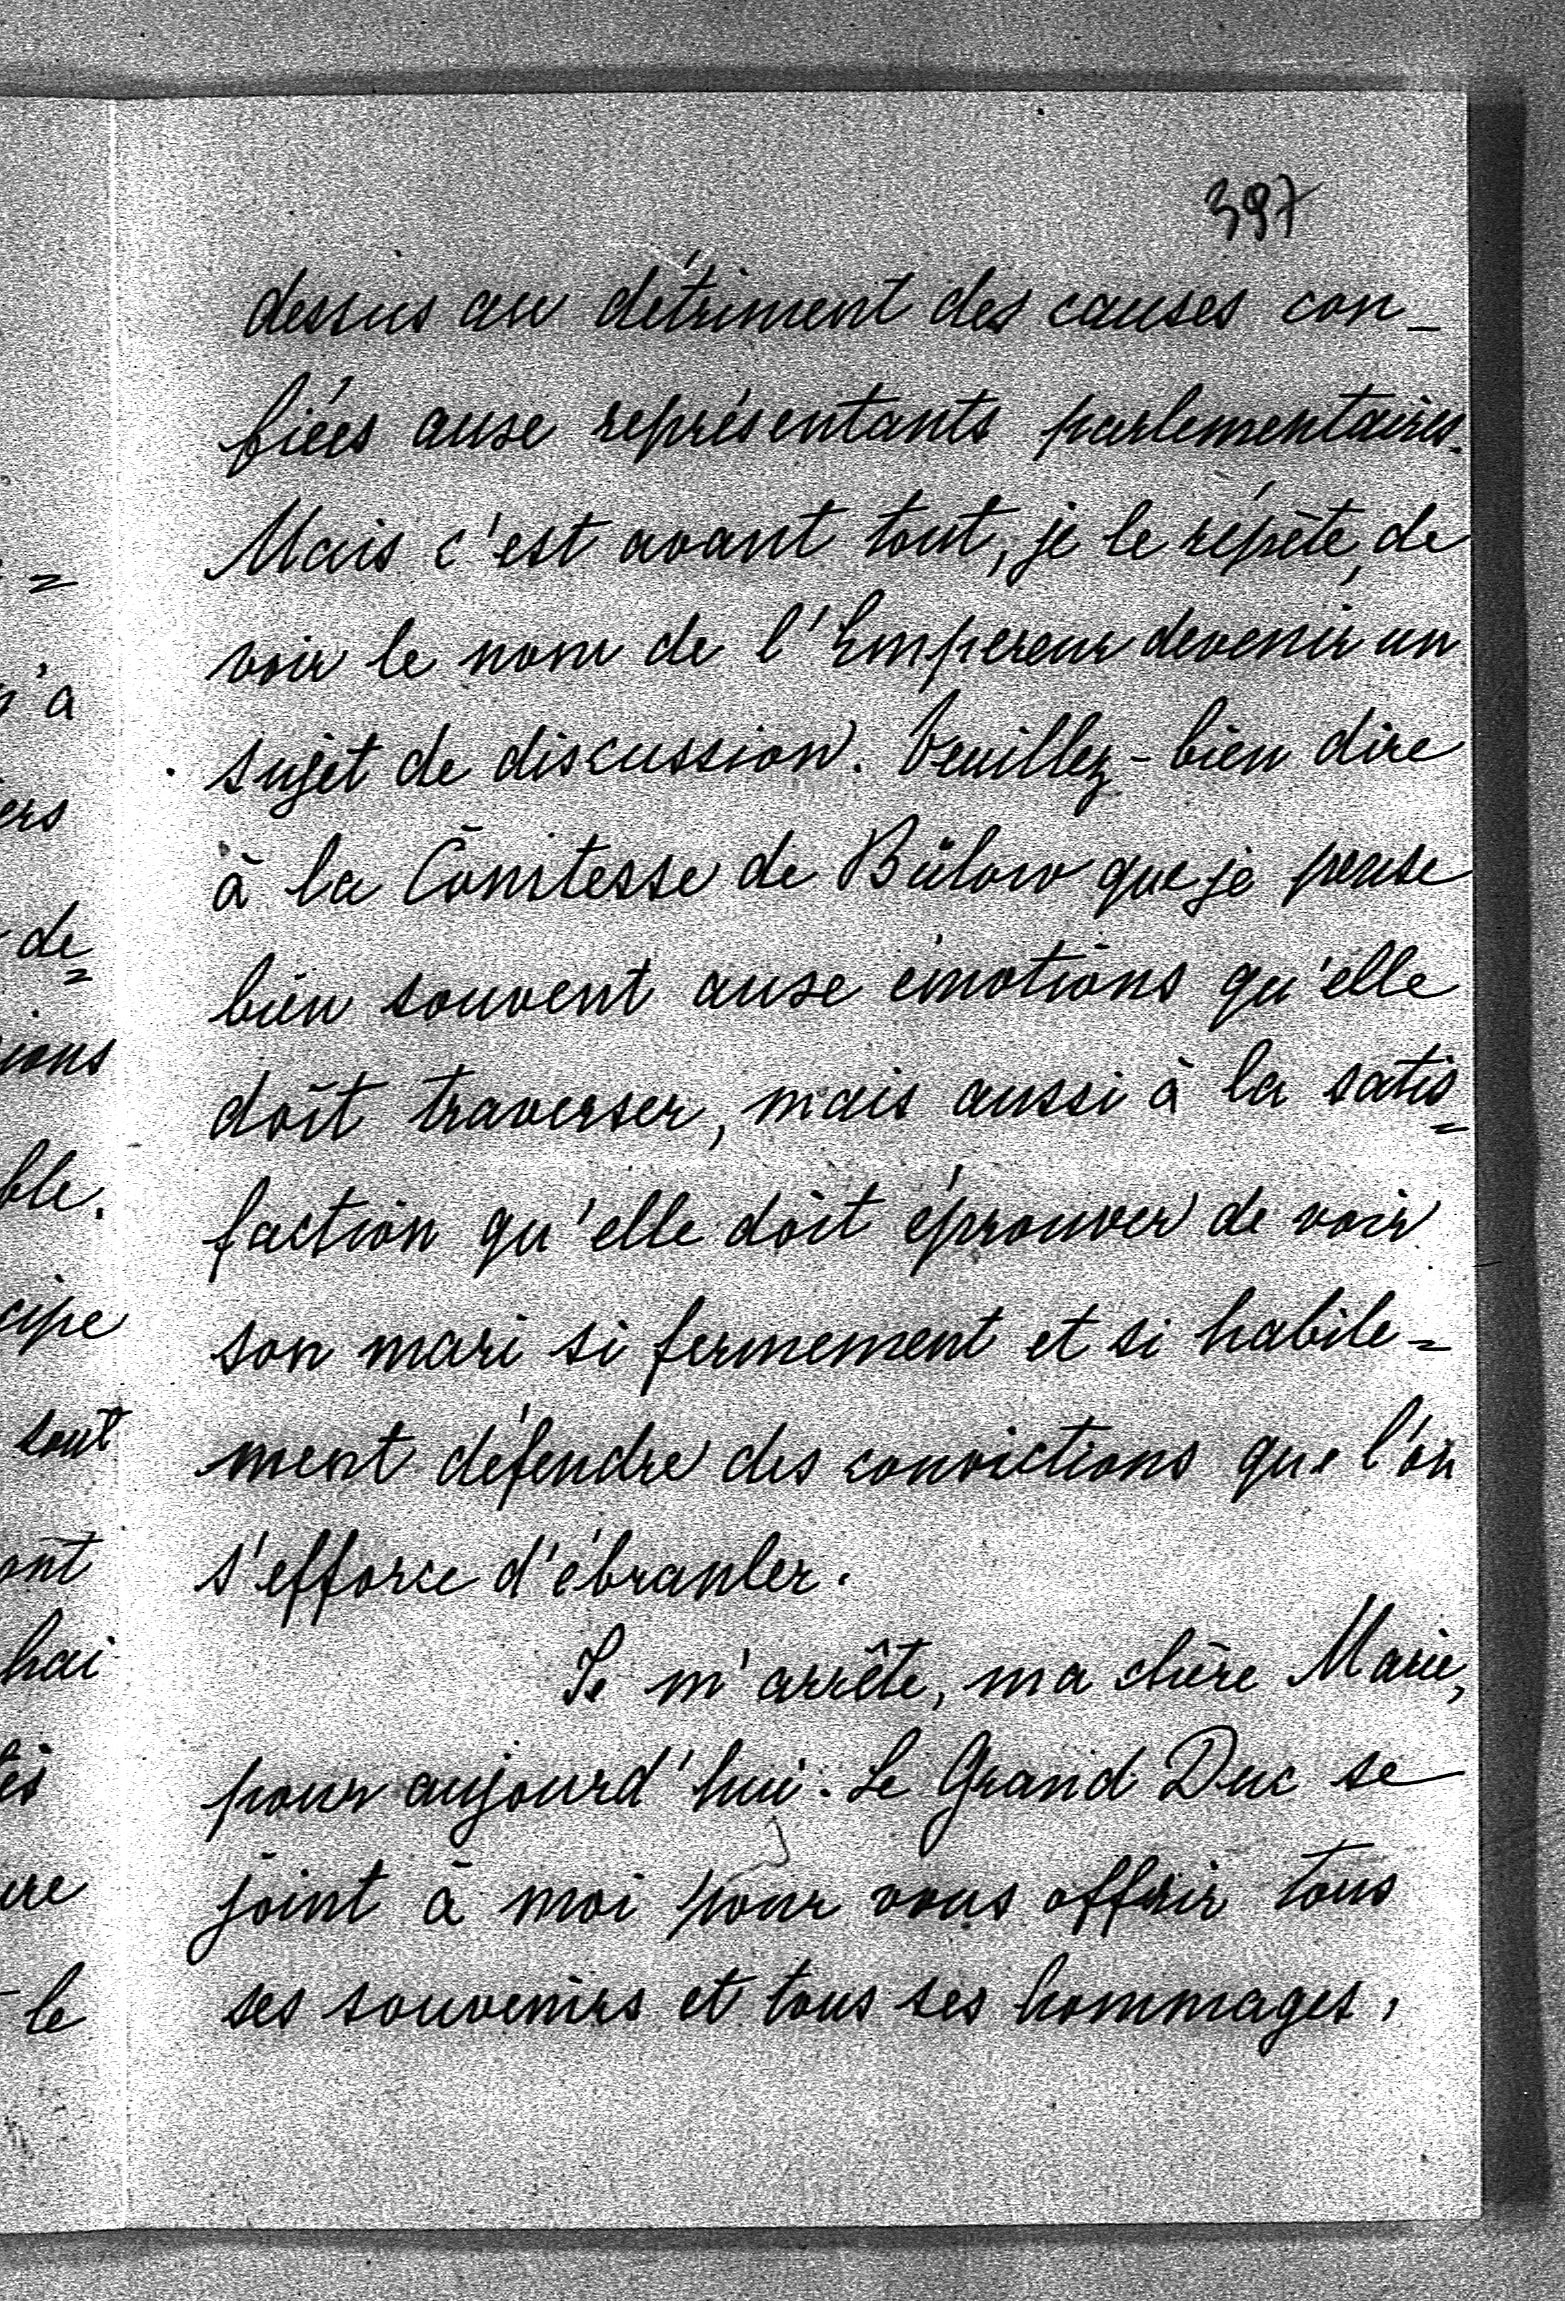 397
dessus au détriment des causes con_
fiées aux représentants parlementaires.
Mais c'est avant tout, je le répète, de
voir le nom de l'Empereur devenir un
sujet de discussion. Veuillez-bien dire
à la Comtesse de Bülow que je pense
bien souvent aux émotions qu'elle
doit traverser, mais aussi à la satis=
faction qu'elle doit éprouver de voir
son mari si fermement et si habile=
ment défendre des convictions que l'on
s'efforce d'ébranler.
Je m'arrête, ma chère Marie,
pour aujourd'hui. Le Grand Duc se
joint à moi pour vous offrir tous
ses souvenirs et tous ses hommages,